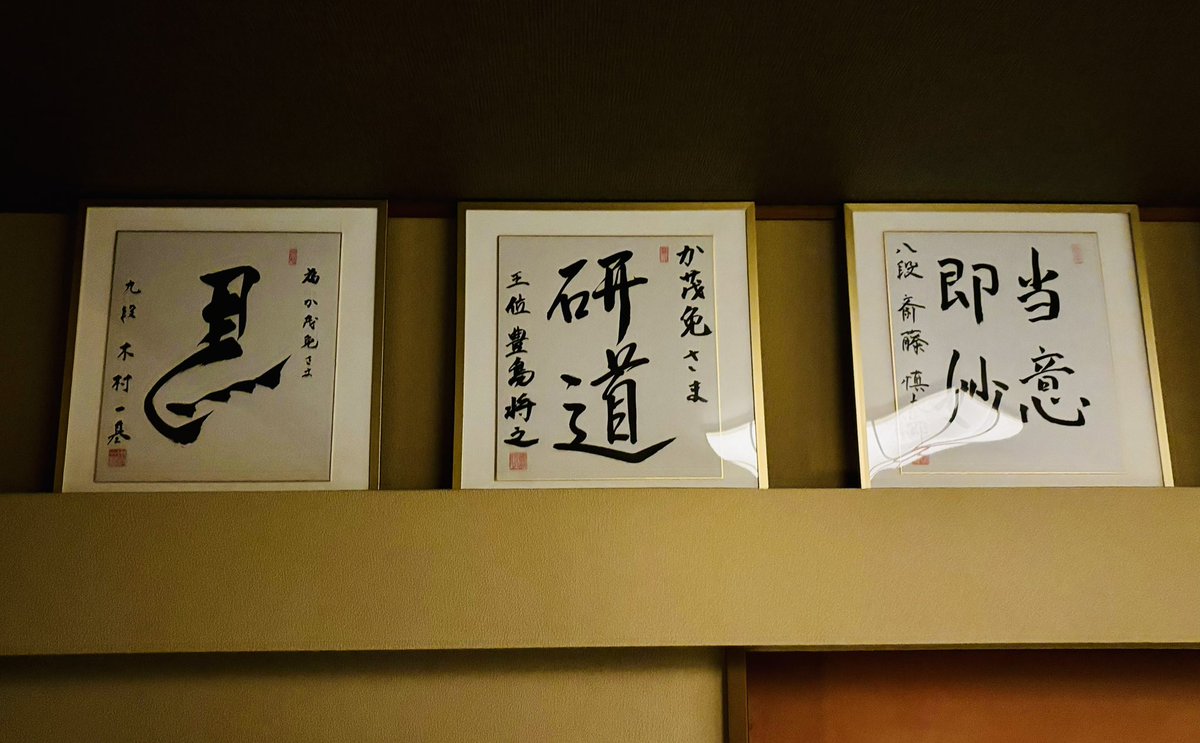 為 か茂免さま
九段 木村一基
か茂免さま
研道
王位 豊島将之
当意
即妙
八段 斎藤慎太郎